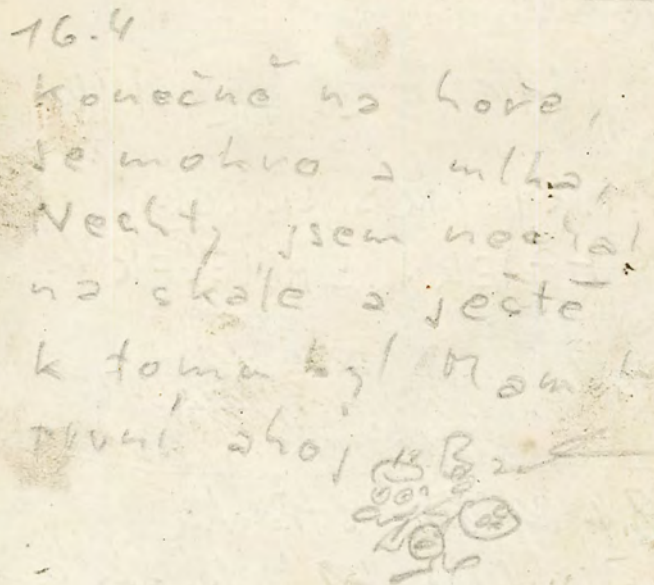 16.4
Konečně na hoře,
je mokro a mlha,
Nechty jsem nechal
na skále a ještě
k tomu byl
první ahoj